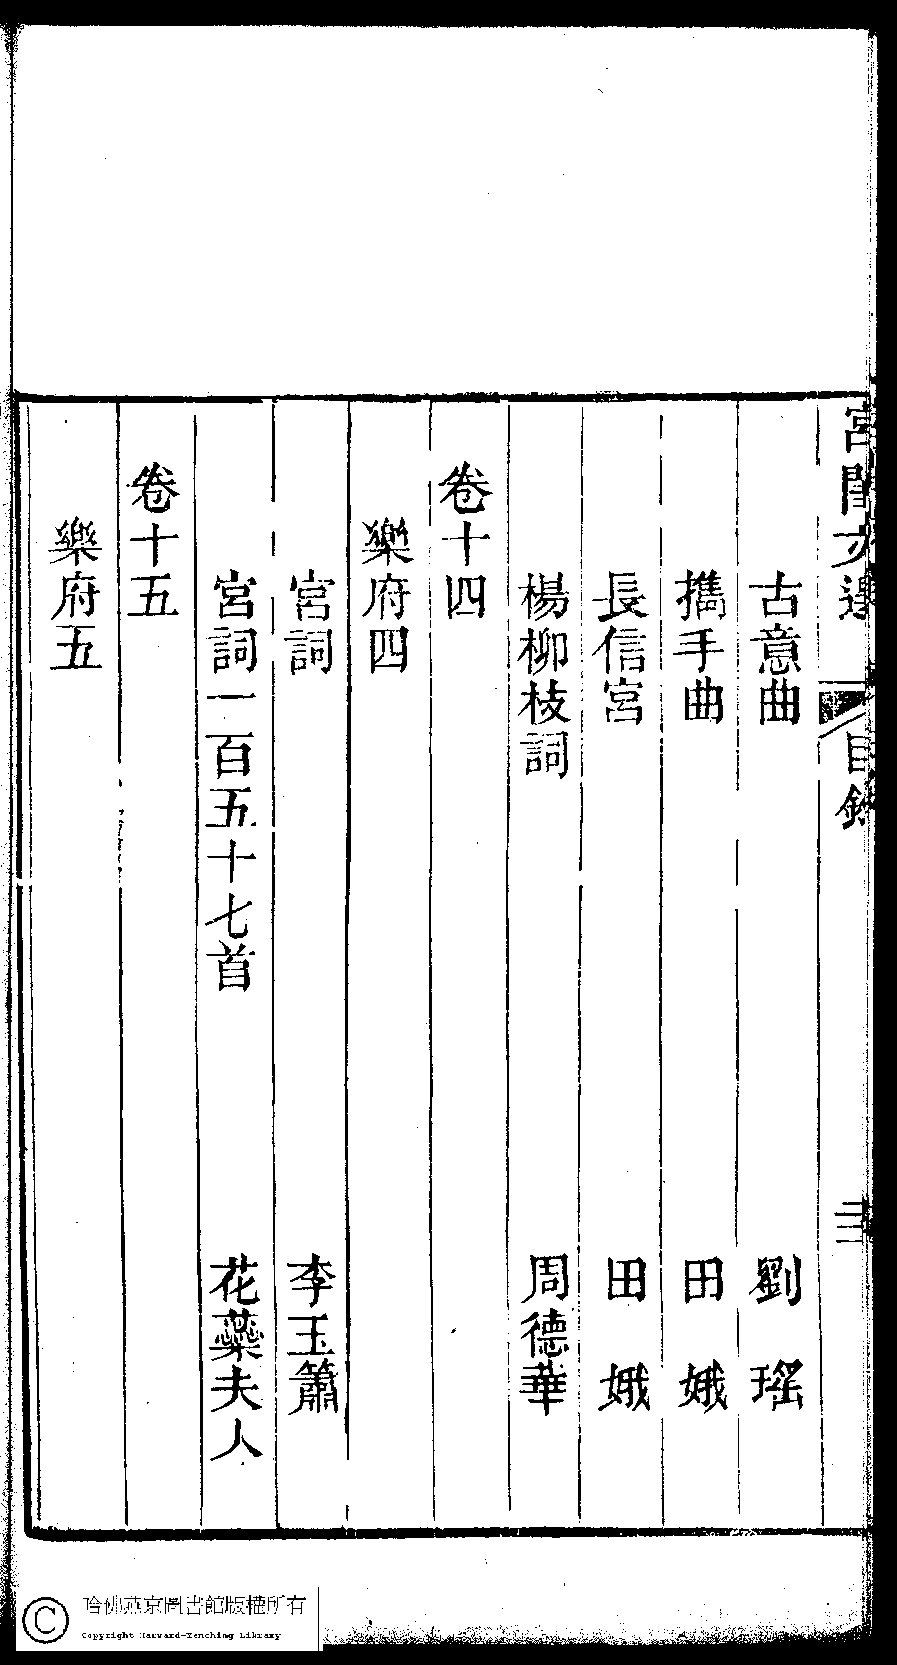 宮閨文選 目錄 三
古意曲 劉瑤
攜手曲 田娥
長信宮 田娥
楊柳枝詞 周德華
卷十四
樂府四
宮詞 李玉簫
宮詞一百五十七首 花蘂夫人
卷十五
樂府五
哈佛燕京圖書館版權所有
Copyright Harvard-Yenching Library